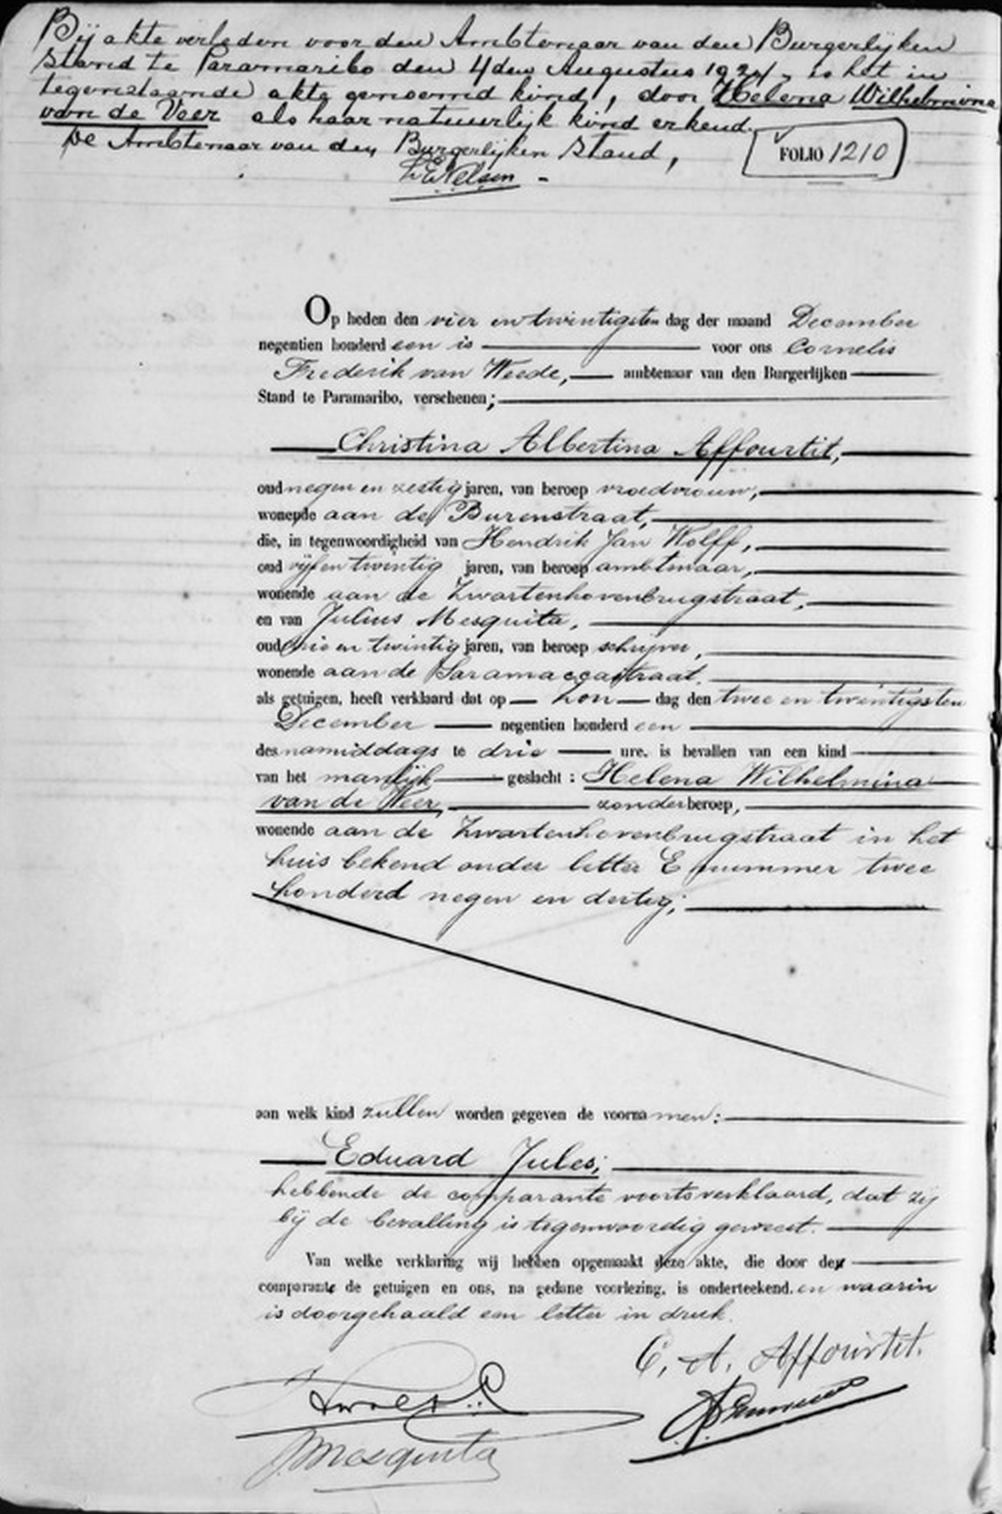 Bij akte verleden voor den Ambtenaar van den Burgerlijken
Stand te Paramaribo den 4den Augustus 1924, is het in
tegenstaande akte genoemd kind, door Helena Wilhelmina
van de Veer als haar natuurlijk kind erkend.
De Ambtenaar van den Burgerlijken Stand,
FOLIO 1210
Op heden den vier en twintigsten dag der maand December
negentien honderd een is voor ons Cornelis
Frederik van Weede, ambtenaar van den Burgerlijken
Stand te Paramaribo, verschenen;
Christina Albertina Affourtit,
oud negen en zestig jaren, van beroep vroedvrouw,
wonende aan de Burenstraat,
die, in tegenwoordigheid van Hendrik Jan Wolff,
oud vijf en twintig jaren, van beroep ambtenaar,
wonende aan de Zwartenhovenbrugstraat,
en van Julius Mesquita,
oud drie en twintig jaren, van beroep schrijver,
wonende aan de Saramaccastraat.
als getuigen, heeft verklaard dat op zon dag den twee en twintigsten
December negentien honderd een
des namiddags te drie ure, is bevallen van een kind
van het manlijk geslacht: Helena Wilhelmina
van de Veer, zonder beroep,
wonende aan de Zwartenhovenbrugstraat in het
huis bekend onder letter E nummer twee
honderd negen en dertig;
aan welk kind zullen worden gegeven de voornamen:
Eduard Jules;
hebbende de comparante voorts verklaard, dat zij
bij de bevalling is tegenwoordig geweest.
Van welke verklaring wij hebben opgemaakt deze akte, die door de
comparante de getuigen en ons, na gedane voorlezing, is onderteekend. en waarin
is doorgehaald een letter in druk.
C. A. Affourtit.
HWolff
JMesquita